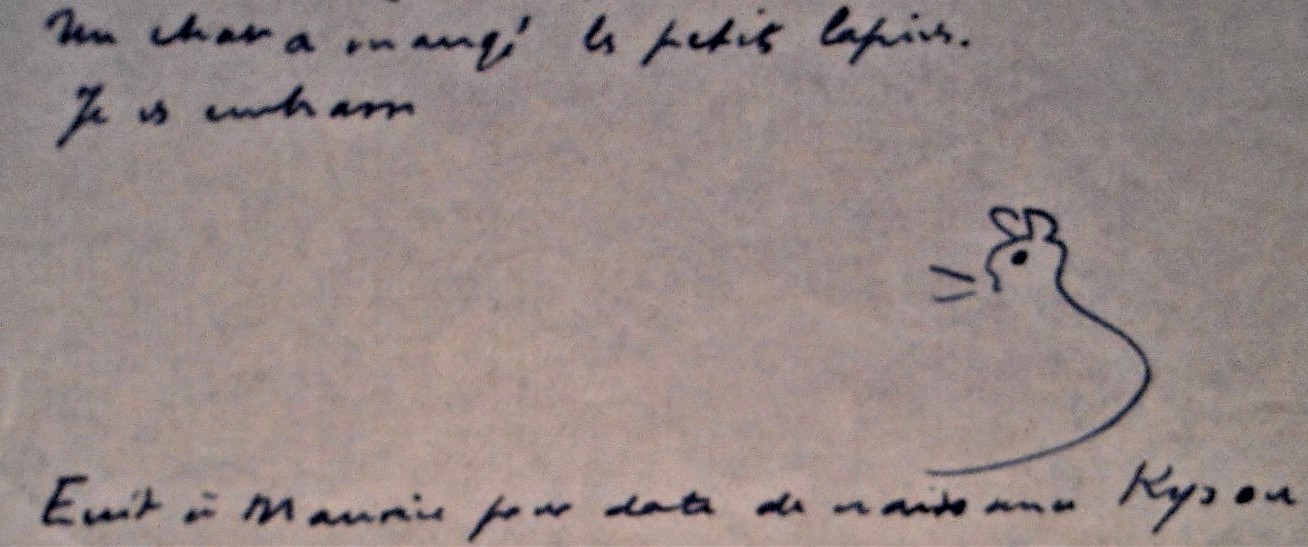 Un chat a mangé le petit lapin.
Je vs embrasse
Ecrit à Maurice pour date de naissance